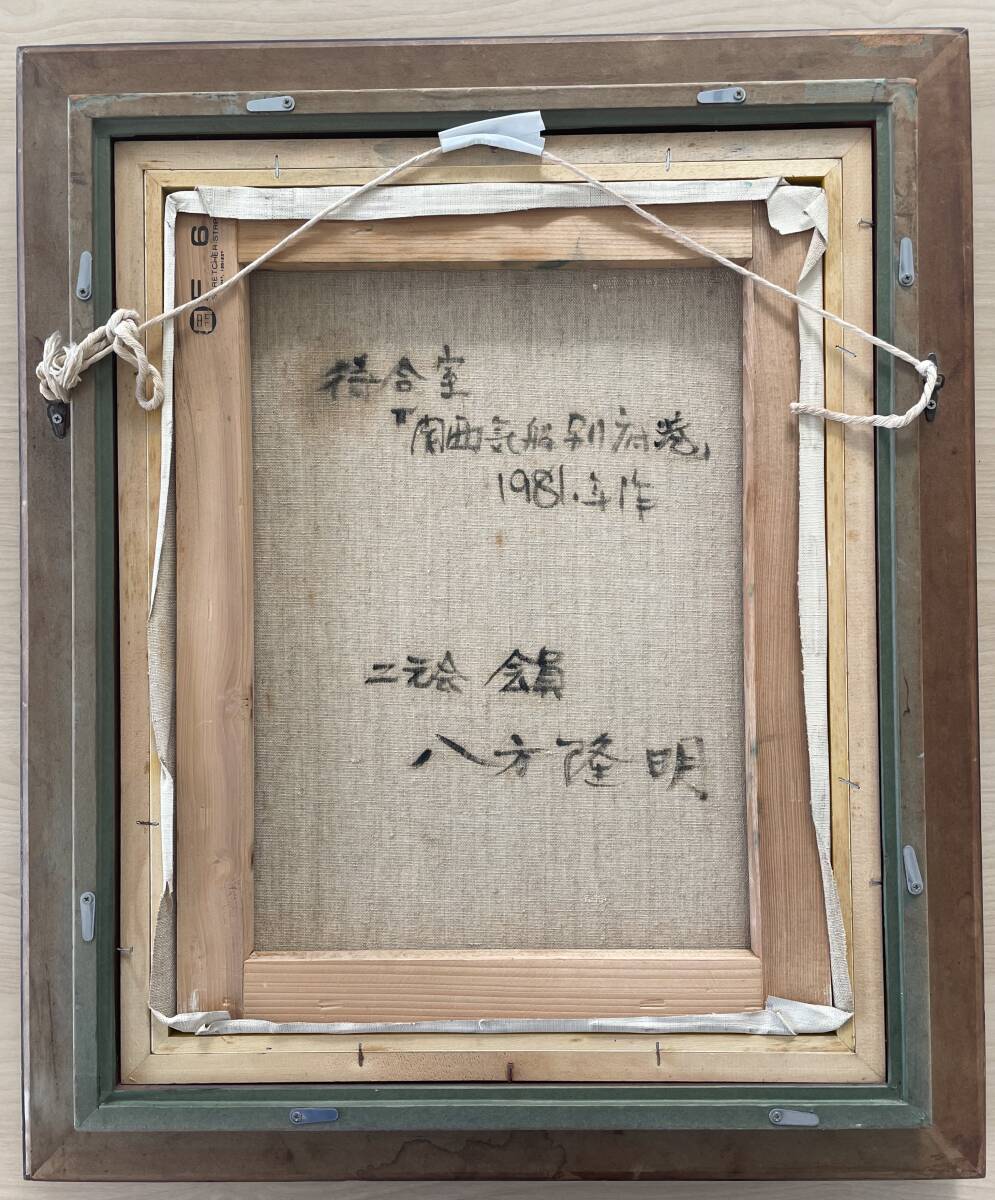 6
STRETCHER STR
待合室
「関西汽船別府港」
1981.年作
二元会 会員
八方隆明